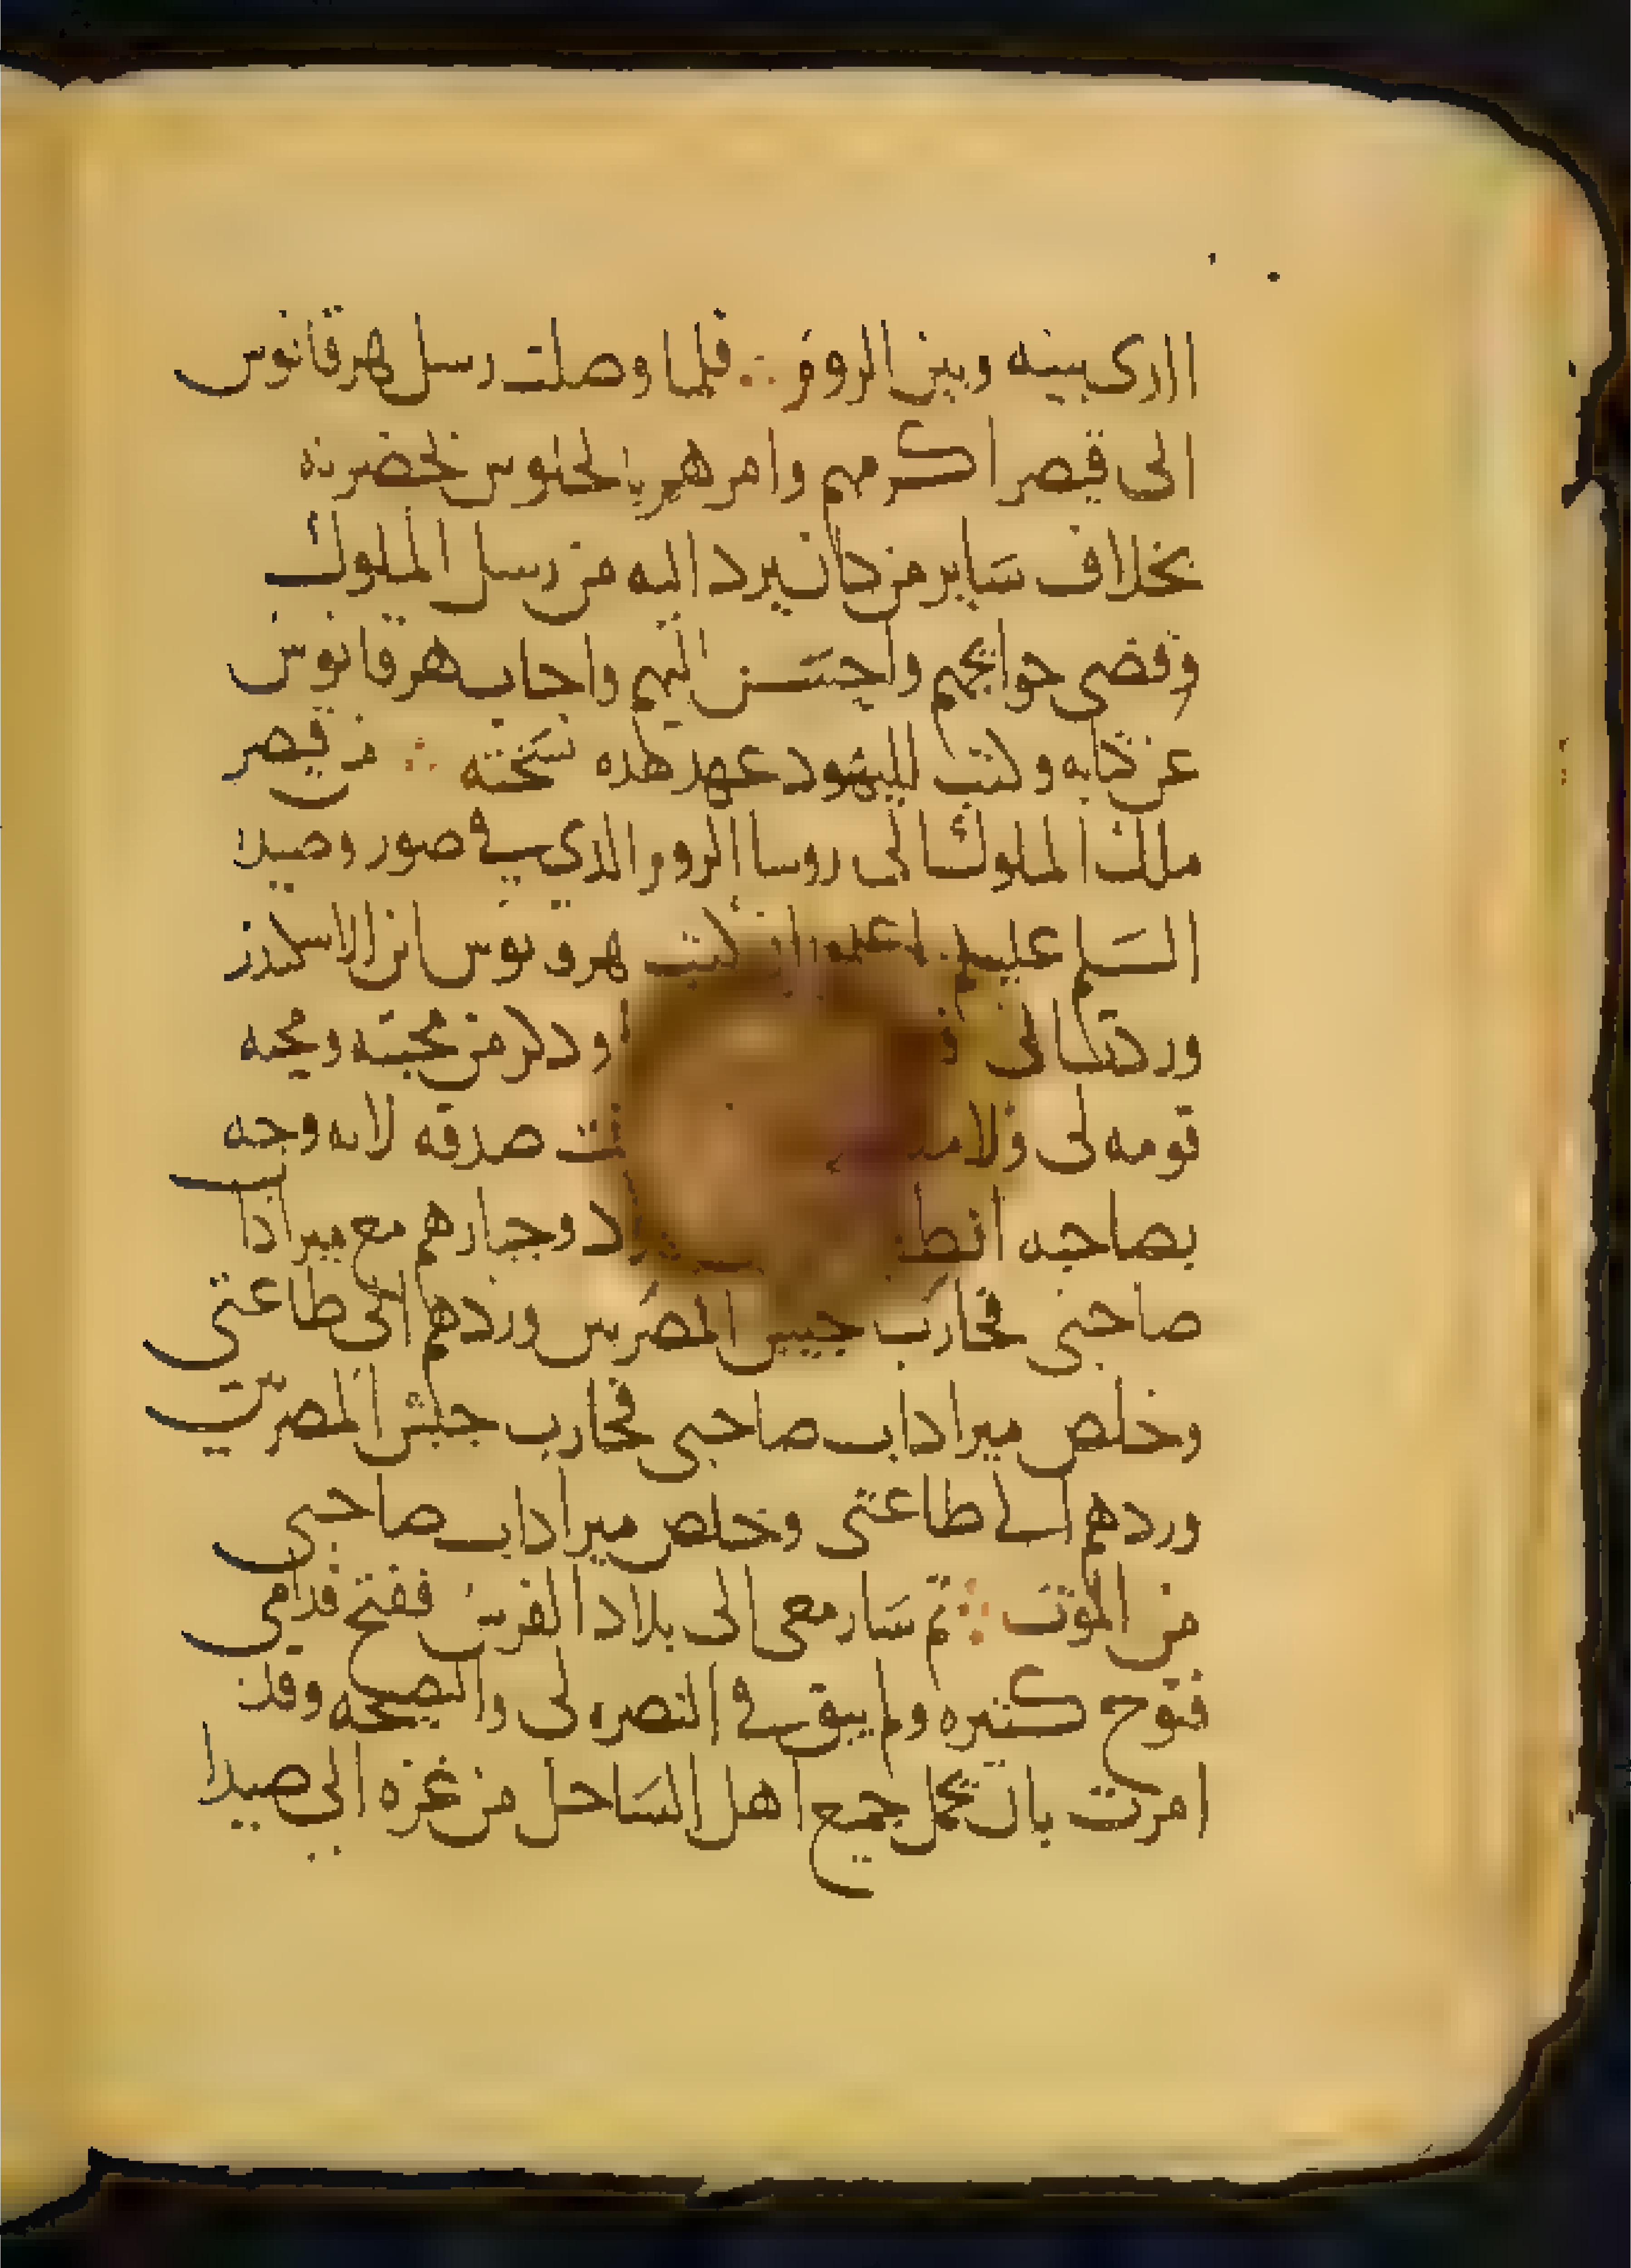 الدى بينه وبين الروم ∴ فلما وصلت رسل هرقانوس
الى قيصر اكرمهم وامرهم بالجلوس بحضرته
بخلاف ساير من كان يرد اليه من رسل الملوك
وقضى حوايجهم واحسن اليهم واجاب هرقانوس
عن كتابه وكتب لليهود عهد هده نسخته ∴ من قيصر
ملك الملوك الى روسا الروم الذي في صور وصيدا
السلم عليكم اعلموا ان كتب هرقانوس ابن الاسكندر
وردت الى ودكر من محبته ومحبه
قومه لى صدقه لانه وجه
بصاحبه وجبارهم مع ميرادات
صاحبى فحارب جيش المصريين وردهم الى طاعتى
وخلص ميراداب صاحبى فحارب جيش المصريين
وردهم الى طاعتى وخلص ميراداب صاحبى
من الموت ∴ ثم سار معى الى بلاد الفرس ففتح قدامى
فتوح كثيره ولم يبق في النصره لى والنصيحه وقد
امرت بان يحمل جميع اهل الساحل من غزه الى صيدا